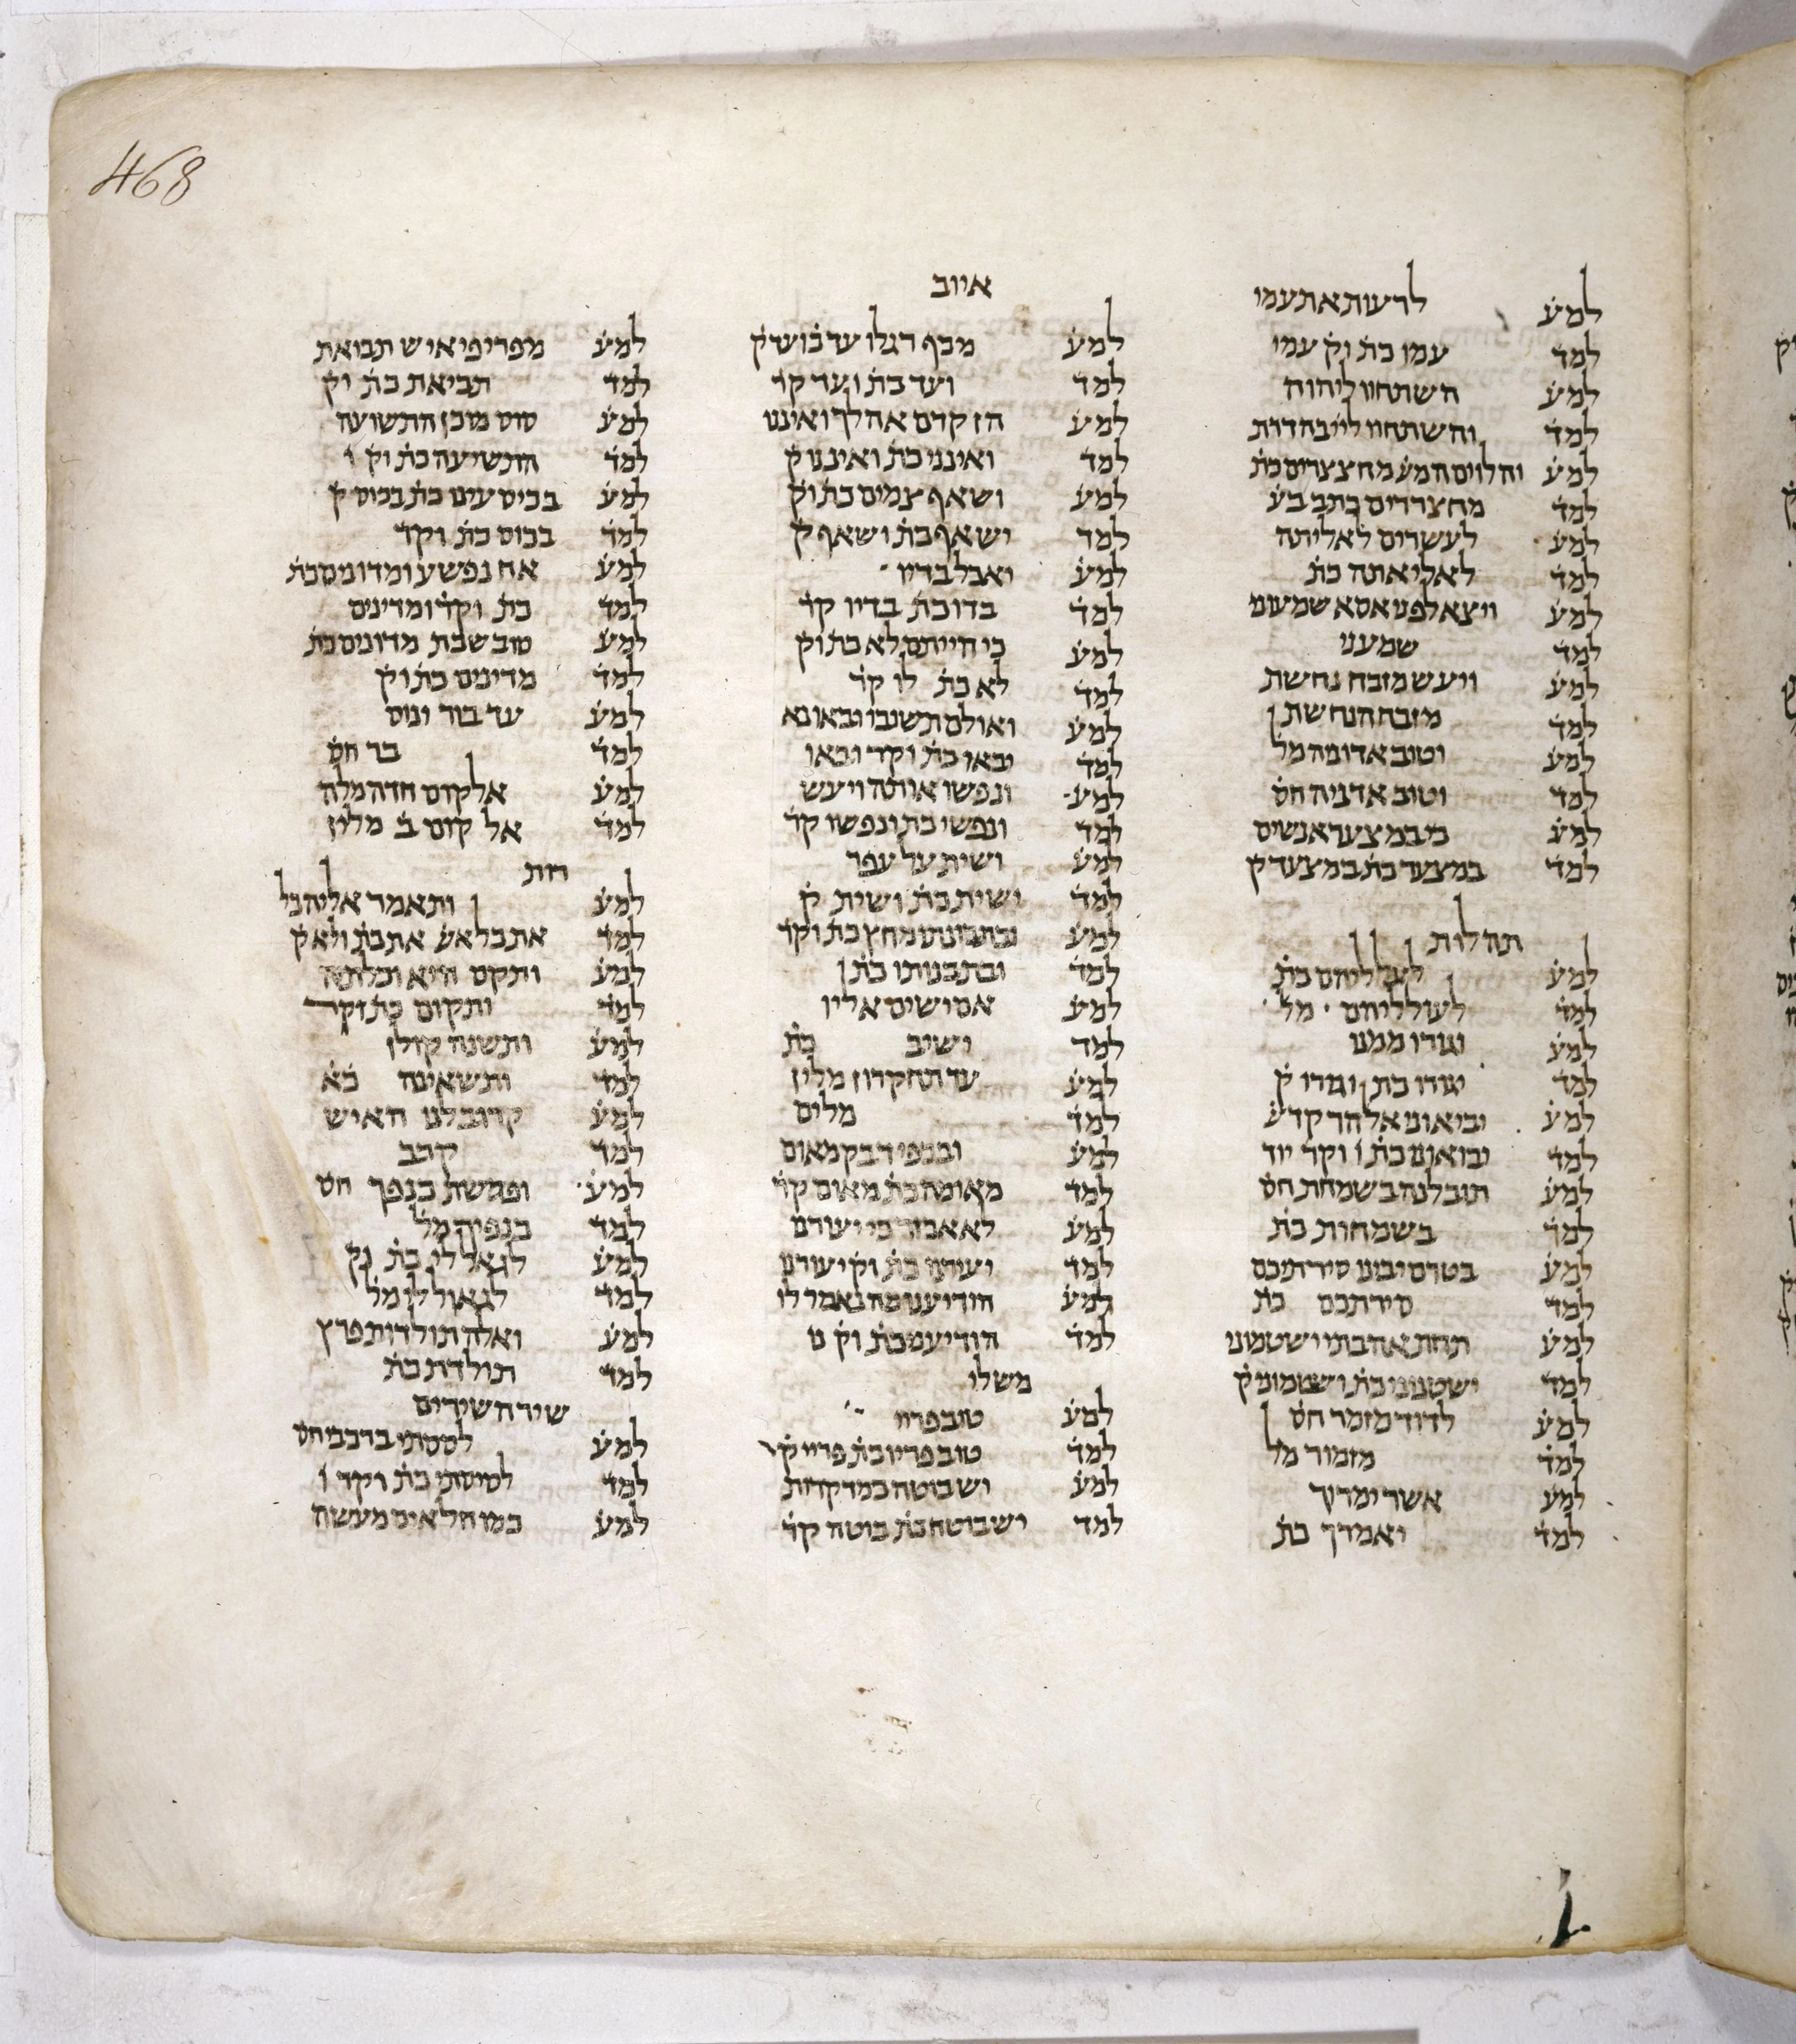 468
למע לרעות את עמי
למד עמו כת וק עמי
למע השתחוו ליהוה
למד והשתחוו לייי בהדרת
למע והלוים המע מחצצרים כת
למד מחצררים כתב בע
למע לעשרים לאליתה
למד לאליאתה כת
למע ויצא לפני אסא שמעוני
למד שמעני
למע ויעש מזבח נחשת
למד מזבח הנחשת ן
למע וטוב אדוניה מל
למד וטוב אדניה חס
למע כי במצער אנשים
למד במצער כת במצעד ק
תהלות
למע לעלליהם כת
למד לעולליהם מל
למע וגורו ממנו
למד יגורו כת וגורו ק
למע יביאוני אל הר קדש
למד יבואוני כת ו וקר יוד
למע תובלנה בשמחת חס
למד בשמחות כת
למע בטרם יבינו סירתיכם
למד סירתכם כת
למע תחת אהבתי ישטמוני
למד ישטנוני כת ישטמוני ק
למע לדוד מזמר חס
למד מזמור מל
למע אשר ימדוך
למד יאמרך כת
איוב
למע מכף רגלו עד כת ועד ק
למד ועד כת ועד קר
למע הן קדם אהלך ואיננו
למד ואינני כת ואיננו ק
למע ושאף צמים כת וק
למד ישאף כת ושאף ק
למע יאכל בדיו
למד בדו כת בדיו קר
למע כי הייתם לא כת וק
למד לא כת לו קר
למע ואולם תשובו ובאו נא
למד יבאו כת וקר ובאו
למע ונפשו אותה ויעש
למד ונפשי כת ונפשו קר
למע ושית על עפר
למד ישית כת ושית ק
למע ובתבונתו מחץ כת וקר
למד ובתבנותו כת ן
למע אם ישים אליו
למד ישיב כת
למע עד תחקרון מלין
למד מלים
למע ובכפי דבק מאום
למד מאומה כת מאום קר
למע לא אכזר כי יעורנו
למד יעירנו כת וק יעורנו
למע הודיענו מה נאמר לו
למד הודיעני כת וק נו
משלי
למע טוב פריי
למד טוב פריו כת פריי ק
למע יש בוטה כמדקרות
למד יש בוטח כת בוטה קר
למע מפרי פי איש תבואת
למד תביאת כת וק
למע סוס מוכן התשועה
למד התשיעה כת וק ו
למע בכיס עינו כת בכוס ק
למד בכוס כת וקר
למע אח נפשע ומדונים כת
למד כת וקר ומדינים
למע טוב שבת מדונים כת
למד מדינים כת וק
למע עד בור ינוס
למד בר חס
למע אלקום חדה מלה
למד אל קום ב מלין
רות
למע ותאמר אליה כל
למד את כל אשׁ את כת ולא ק
למע ותקם היא וכלתיה
למד ותקום כת וקר
למע ותשנה קולן
למד ותשאינה כא
למע קרוב לנו האיש
למד קרב
למע ופרשת כנפך חס
למד כנפיך מל
למע לגאל לי כת וק
למד לגאול לי מל
למע ואלה תולדות פרץ
למד תולדת כת
שיר השירים
למע לססתי ברכבי חס
למד לסוסתי כת וקר ו
למע כמו חלאים מעשה